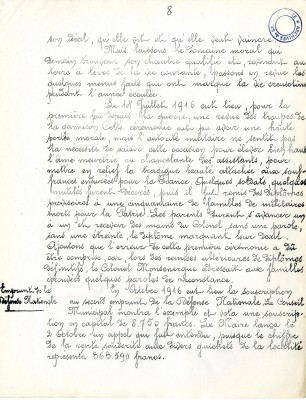 8
son Idéal, qu'elle vit et qu'elle veut vaincre.
Mais laissons le domaine moral qui
demain trouvera son chantre qualifié et, revenant au
terre à terre de la vie courante, passons en revue les
quelques menus faits qui ont marqué la vie creusotine
pendant l'année écoulée.
Le 14 Juillet 1916 eut lieu, pour la
première fois depuis la guerre, une revue des troupes de
la garnison. Cette cérémonie eut pu avoir une haute
portée morale, mais l'autorité militaire ne sentit pas
la nécessité de saisir cette occasion pour élever bien haut
l'âme meurtrie ou chancelante des assistants, pour
mettre en relief la tragique beauté attachée aux souf-
frances endurées pour la France. Quelques soldats, quelques
mutilés furent décorés, puis il y eut remise des Diplômes
provisoires à une cinquantaine de familles de militaires
morts pour la Patrie. Les parents durent s'avancer un
à un et recevoir des mains du Colonel, sans une parole,
sans une étreinte, le diplôme marquant leur deuil.
Ajoutons que l'erreur de cette première cérémonie a dû
être comprise car, lors des remises ultérieures de Diplômes
définitifs, le Colonel adressait aux familles
éprouvées quelques paroles de circonstance.
Emprunt de la
Défense Nationale
En Octobre 1916 eut lieu la souscription
au second emprunt de la Défense Nationale. Le Conseil
Municipal montra l'exemple et vota une souscrip-
tion en capital de 8.750 francs. Le Maire lança le
2 Octobre un appel qui fut entendu, puisque le chiffre
de la rente souscrite aux divers guichets de la localité
représente 868.590 francs.